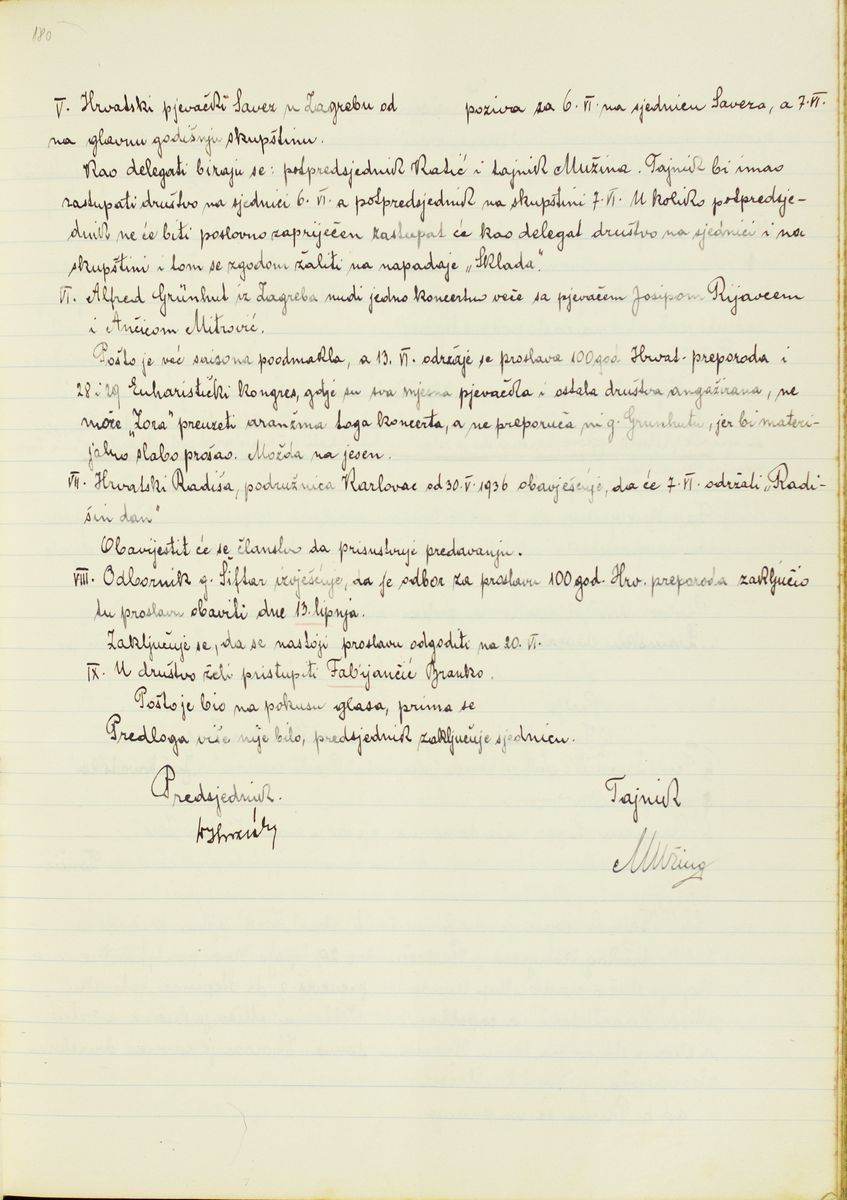 180
V. Hrvatski pjevački Savez u Zagrebu od poziva za 6. VI. na sjednicu Saveza, a 7. VI.
na glavnu godišnju skupštinu.
Kao delegati biraju se: potpredsjednik Katić i tajnik Mužina. Tajnik bi imao
zastupati društvo na sjednici 6. VI. a potpredsjednik na skupštini 7. VI. U koliko potpredsje-
dnik ne će biti poslovno zapriječen zastupat će kao delegat društvo na sjednici i na
skupštini i tom se zgodom žaliti na napadaje „Sklada”.
VI. Alfred Grünhut iz Zagreba nudi jedno koncertno veče sa pjevačem Josipom Rijavcem
i Ančicom Mitrović.
Pošto je već saisona poodmakla, a 13. VI. održaje se proslava 100 god Hrvat. preporoda i
28 i 29 Euharistički kongres, gdje su sva mjesna pjevačka i ostala društva angažirana, ne
može „Zora” preuzeti aranžma toga koncerta, a ne preporuča ni g. Grünhutu, jer bi materi-
jalno slabo prošao. Možda na jesen.
VII. Hrvatski Radiša, podružnica Karlovac od 30. V. 1936 obavješćuje, da će 7. VI. održati „Radi-
šin dan”
Obavijestit će se članstvo da prisustvuje predavanju.
VIII. Odbornik g. Šiftar izvješćuje, da je odbor za proslavu 100 god. Hrv. preporoda zaključio
tu proslavu obaviti dne 13. lipnja.
Zaključuje se, da se nastoji proslavu odgoditi na 20. VI.
IX. U društvo želi pristupiti Fabijančić Branko.
Pošto je bio na pokusu glasa, prima se
Predloga više nije bilo, predsjednik zaključuje sjednicu.
Predsjednik. Tajnik
Mužina